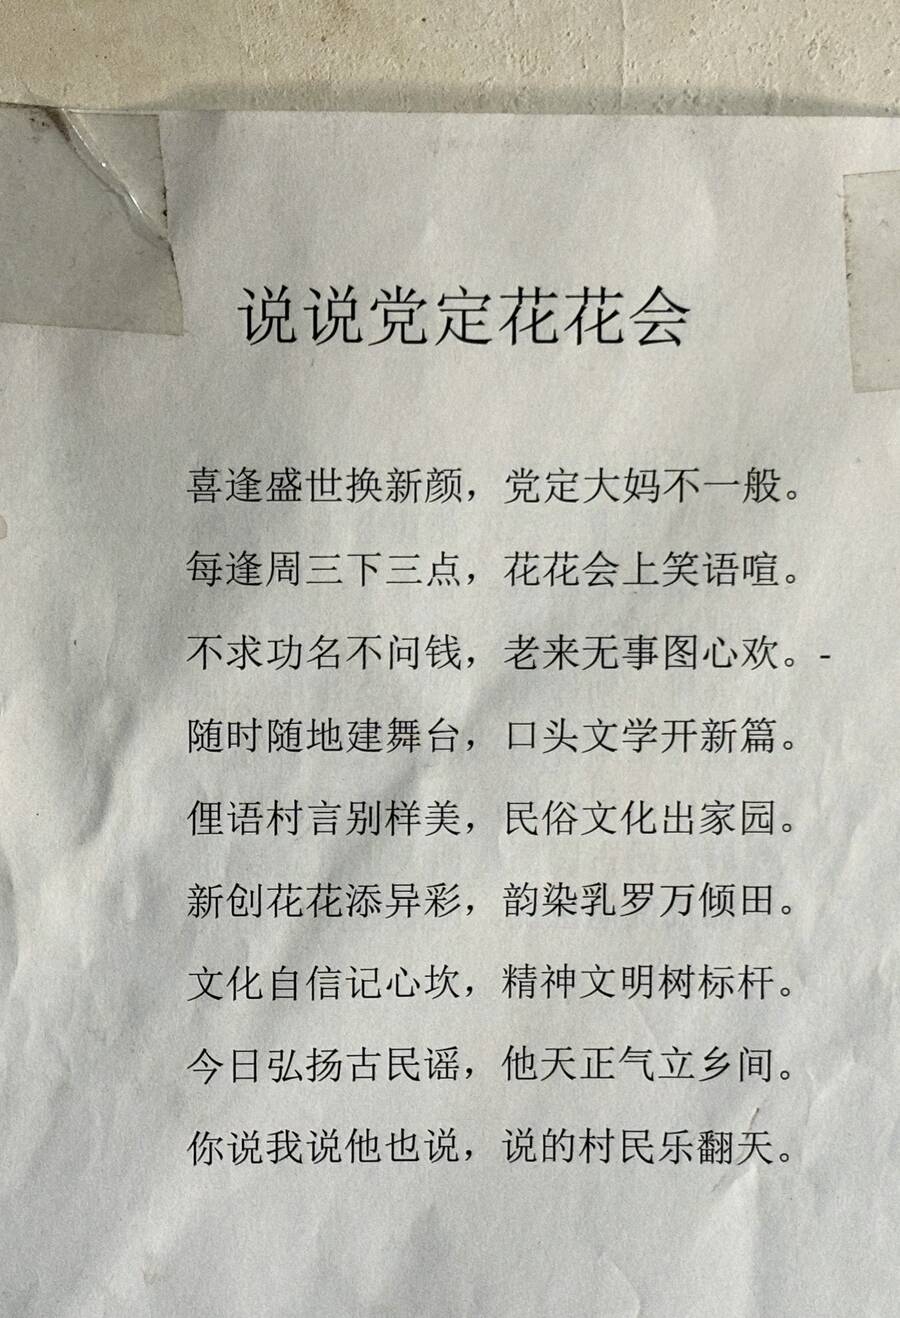 说说党定花花会
喜逢盛世换新颜，党定大妈不一般。
每逢周三下三点，花花会上笑语喧。
不求功名不问钱，老来无事图心欢。-
随时随地建舞台，口头文学开新篇。
俚语村言别样美，民俗文化出家园。
新创花花添异彩，韵染乳罗万倾田。
文化自信记心坎，精神文明树标杆。
今日弘扬古民谣，他天正气立乡间。
你说我说他也说，说的村民乐翻天。